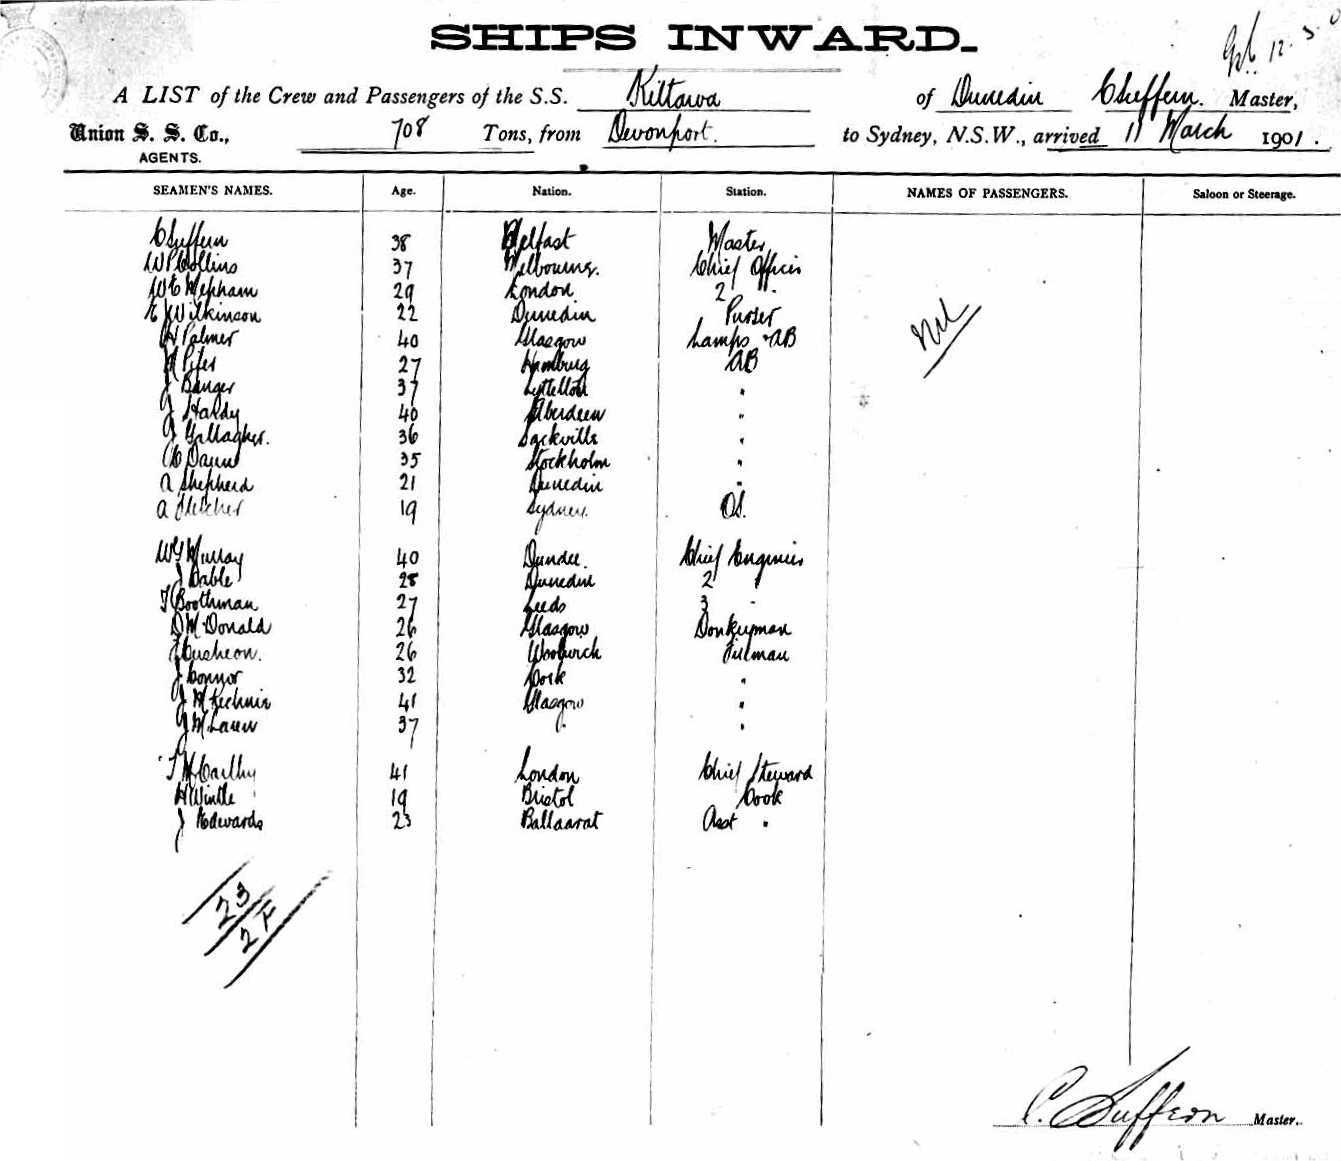 SHIPS INWARD.
12.
A LIST of the Crew and Passengers of the S.S. Kittawa of Dunedin C Suffern. Master,
Union S. S. Co., 708 Tons, from Devonport. to Sydney, N.S.W., arrived 11 March 1901.
AGENTS.
SEAMEN'S NAMES. Age. Nation. Station. NAMES OF PASSENGERS. Saloon or Steerage.
C Suffern 38 Belfast Master
W P Collins 37 Melbourne. Chief Officer
W E Mepham 29 London 2 " .
E J Wilkinson 22 Dunedin Purser
H Palmer 40 Glasgow Lamps & AB
Nil
27 Hamburg AB
J Banger 37 Lyttelton "
J Hardy 40 Aberdeen "
J Gallagher. 36 Sackville "
35 Stockholm "
A Shepherd 21 Dunedin "
A Fletcher 19 Sydney. OS.
W G Murray 40 Dundee. Chief Engineer
J Bable 28 Dunedin 2 "
T Boothman 27 Leeds 3 "
D McDonald 26 Glasgow Donkeyman
26 Woolwich Fireman
J Connor 32 Cork "
J McKechnie 41 Glasgow "
J McLaren 37 " "
T McCarthy 41 London Chief Steward
H Wintle 19 Bristol Cook
J Edwards 23 Ballaarat Asst "
23
27
C. Suffern Master.